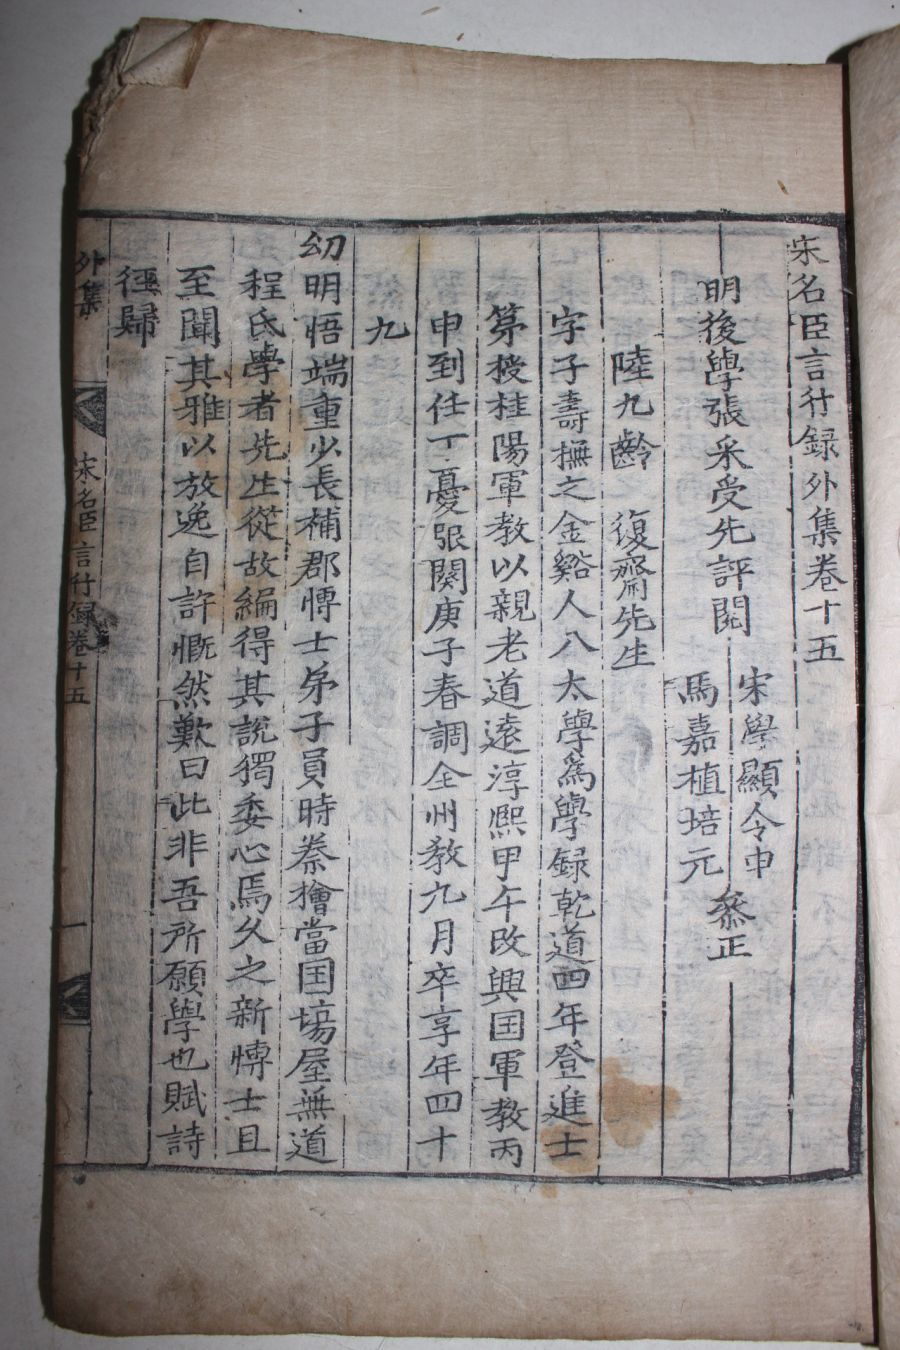 宋名臣言行録外集卷十五
明後學張采受先評閱
宋學顯令申
馬嘉植培元
叅正
陸九齡　復齋先生
字子壽撫之金谿人八太學爲學録乾道四年登進士
苐授桂陽軍教以親老道遠淳熙甲午改興国軍教丙
申到任丁憂服闋庚子春調全州教九月卒享年四十
九
幼明悟端重少長補郡愽士弟子員時秦檜當国塲屋無道
程氏學者先生從故編得其說獨委心焉久之新愽士且
至聞其雅以放逸自許慨然歎曰此非吾所願學也賦詩
徑歸
外集
宋名臣言行録卷十五
一